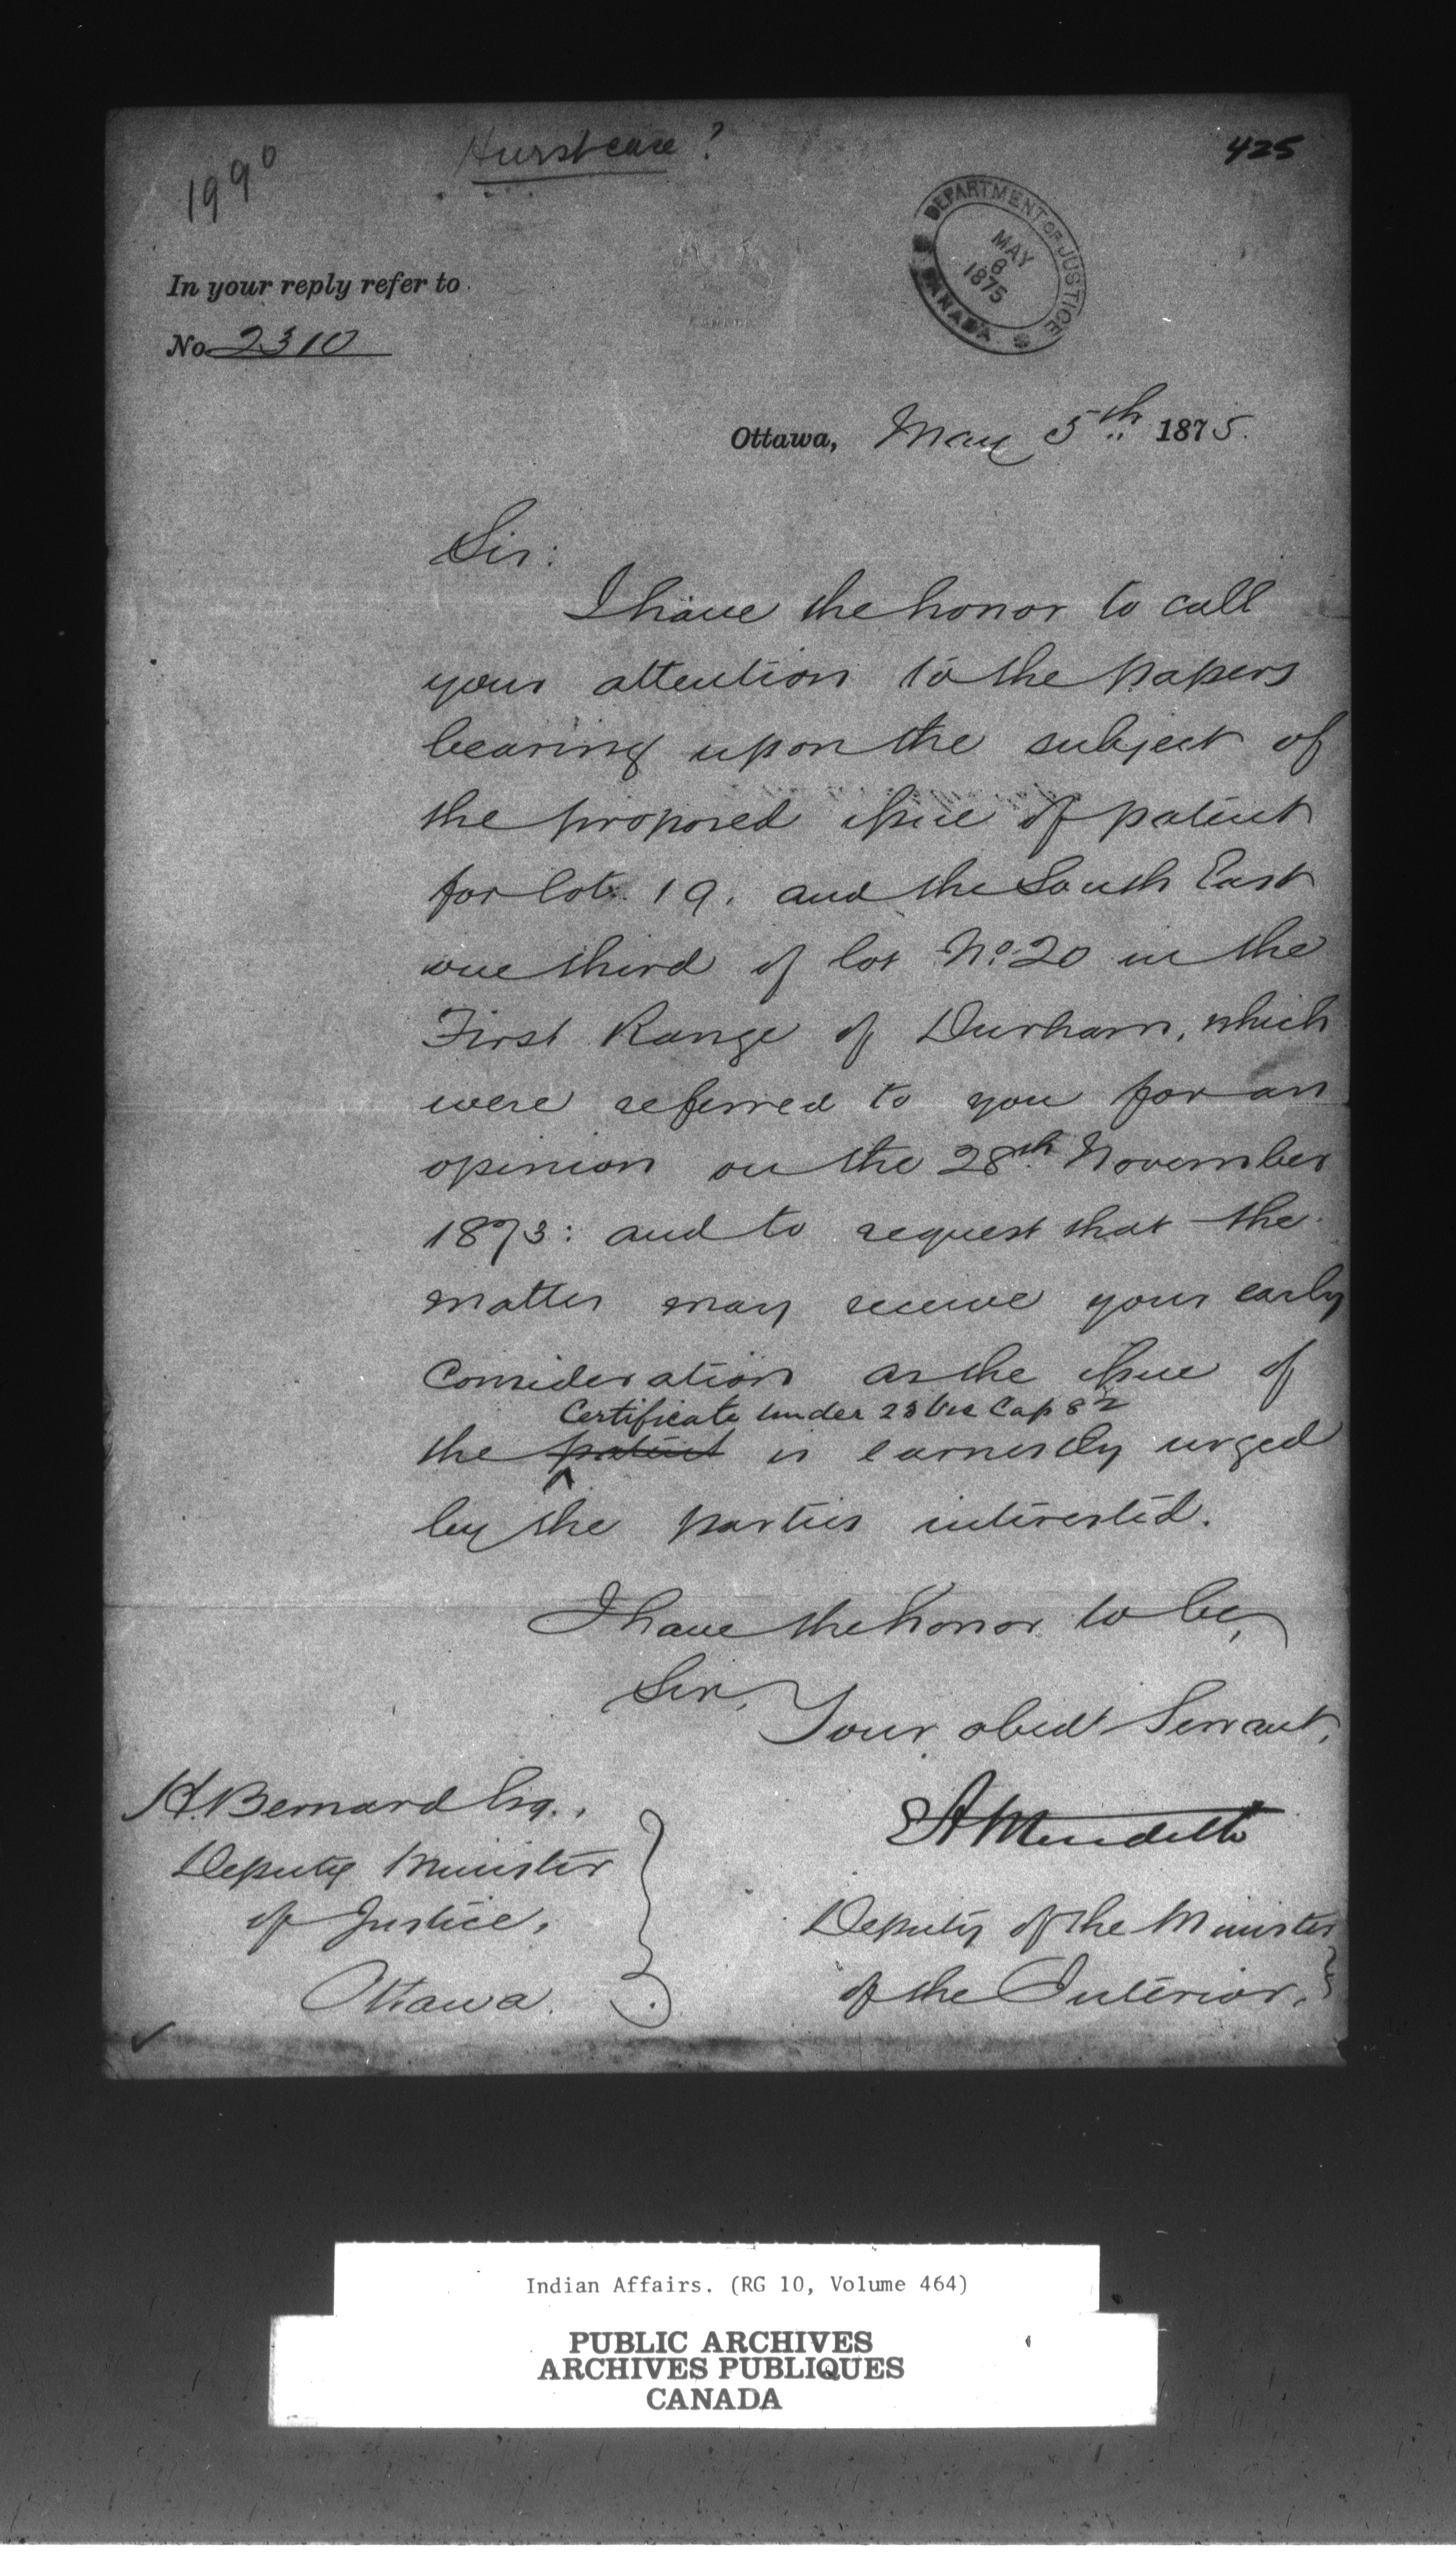 1990
Hurst case?
425
DEPARTMENT OF JUSTICE
MAY
6
1875
CANADA
In your reply refer to
No 2310
CANADA
Ottawa, May 5th 1875.
Sir:
I have the honor to call
your attention to the papers
bearing upon the subject of
the proposed issue of patent
for lot 19. and the South East
one third of lot No. 20 in the
First Range of Durham, which
were referred to you for an
opinion on the 28th November
1873: and to request that the
matter may receive your early
Consideration as the issue of
Certificate under 23 Vic Cap 82
the patent is earnestly urged
by the parties interested.
I have the honor to be,
Sir,
Your obedt Servant,
H. Bernard Esq.,
Deputy Minister
of Justice,
Ottawa.
EA Meredith
Deputy of the Minister
of the Interior,
Indian Affairs. (RG 10, Volume 464)
PUBLIC ARCHIVES
ARCHIVES PUBLIQUES
CANADA